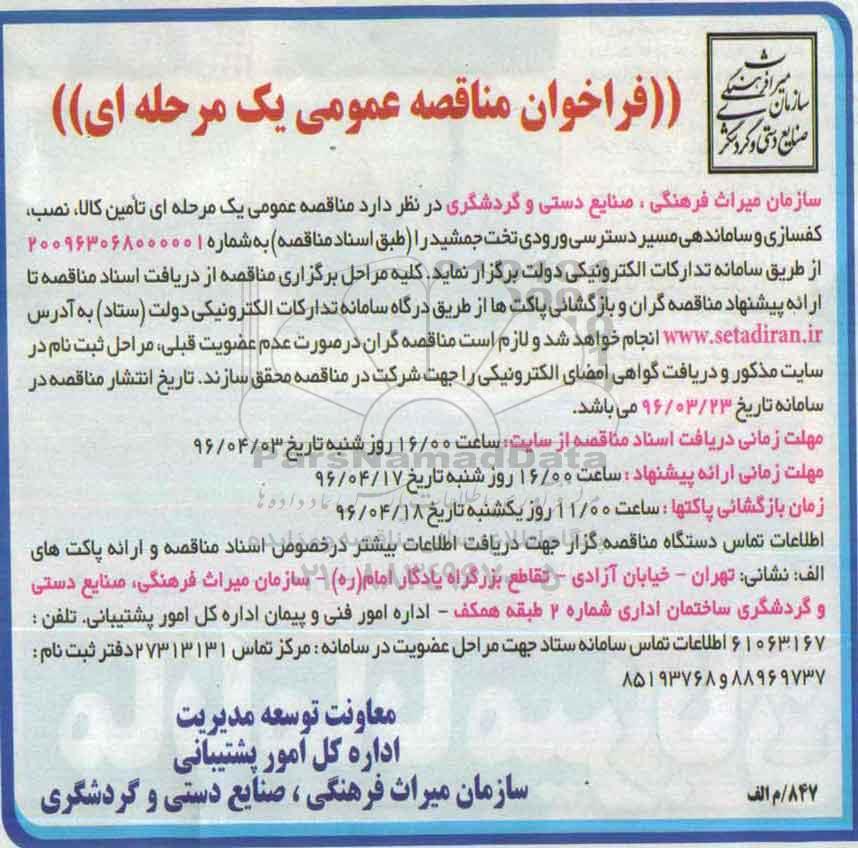 سازمان میراث فرهنگی
صنایع دستی و گردشگری
((فراخوان مناقصه عمومی یک مرحله ای))
سازمان میراث فرهنگی ، صنایع دستی و گردشگری در نظر دارد مناقصه عمومی یک مرحله ای تأمین کالا، نصب،
کفسازی و ساماندهی مسیر دسترسی ورودی تخت جمشید را (طبق اسناد مناقصه) به شماره ۲۰۰۹۶۳۰۶۸۰۰۰۰۰۱
از طریق سامانه تدارکات الکترونیکی دولت برگزار نماید. کلیه مراحل برگزاری مناقصه از دریافت اسناد مناقصه تا
ارائه پیشنهاد مناقصه گران و بازگشائی پاکت ها از طریق درگاه سامانه تدارکات الکترونیکی دولت (ستاد) به آدرس
www.setadiran.ir انجام خواهد شد و لازم است مناقصه گران در صورت عدم عضویت قبلی، مراحل ثبت نام در
سایت مذکور و دریافت گواهی امضای الکترونیکی را جهت شرکت در مناقصه محقق سازند. تاریخ انتشار مناقصه در
سامانه تاریخ ۹۶/۰۳/۲۳ می باشد.
مهلت زمانی دریافت اسناد مناقصه از سایت: ساعت ۱۶/۰۰ روز شنبه تاریخ ۹۶/۰۴/۰۳
مهلت زمانی ارائه پیشنهاد : ساعت ۱۶/۰۰ روز شنبه تاریخ ۹۶/۰۴/۱۷
زمان بازگشائی پاکتها : ساعت ۱۱/۰۰ روز یکشنبه تاریخ ۹۶/۰۴/۱۸
ParsNamadData
اطلاعات تماس دستگاه مناقصه گزار جهت دریافت اطلاعات بیشتر درخصوص اسناد مناقصه و ارائه پاکت های
الف: نشانی: تهران - خیابان آزادی - تقاطع بزرگراه یادگار امام(ره) - سازمان میراث فرهنگی، صنایع دستی
و گردشگری ساختمان اداری شماره ۲ طبقه همکف - اداره امور فنی و پیمان اداره کل امور پشتیبانی. تلفن :
۶۱۰۶۳۱۶۷ اطلاعات تماس سامانه ستاد جهت مراحل عضویت در سامانه : مرکز تماس ۲۷۳۱۳۱۳۱ دفتر ثبت نام :
۸۸۹۶۹۷۳۷ و ۸۵۱۹۳۷۶۸
معاونت توسعه مدیریت
اداره کل امور پشتیبانی
سازمان میراث فرهنگی ، صنایع دستی و گردشگری
۸۴۷/م الف